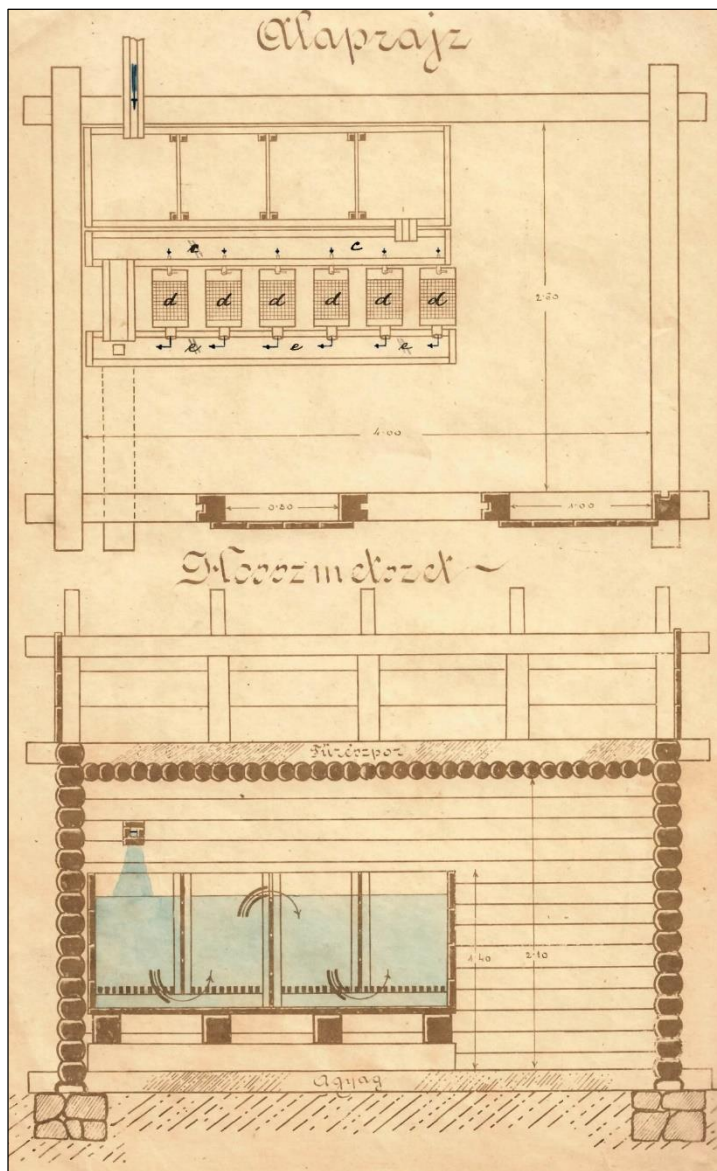 Alaprajz
e c
d d d d d d
e e e
2·60
4·00
0·80 1·00
Hosszmetszet
Fűrészpor
1·40 2·10
Agyag